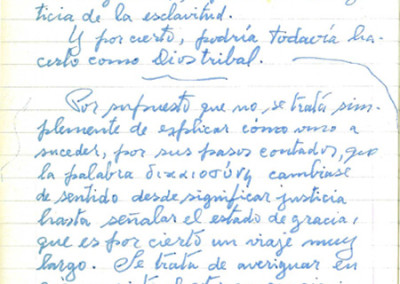 ticia de la esclavitud.
Y por cierto, podría todavía ha-
cerlo como Dios tribal.
Por supuesto que no se trata sim-
plemente de explicar cómo vino a
suceder, por sus pasos contados, que
la palabra δικαιοσύνη cambiase
de sentido desde significar justicia
hasta señalar el estado de gracia,
que es por cierto un viaje muy
largo. Se trata de averiguar en